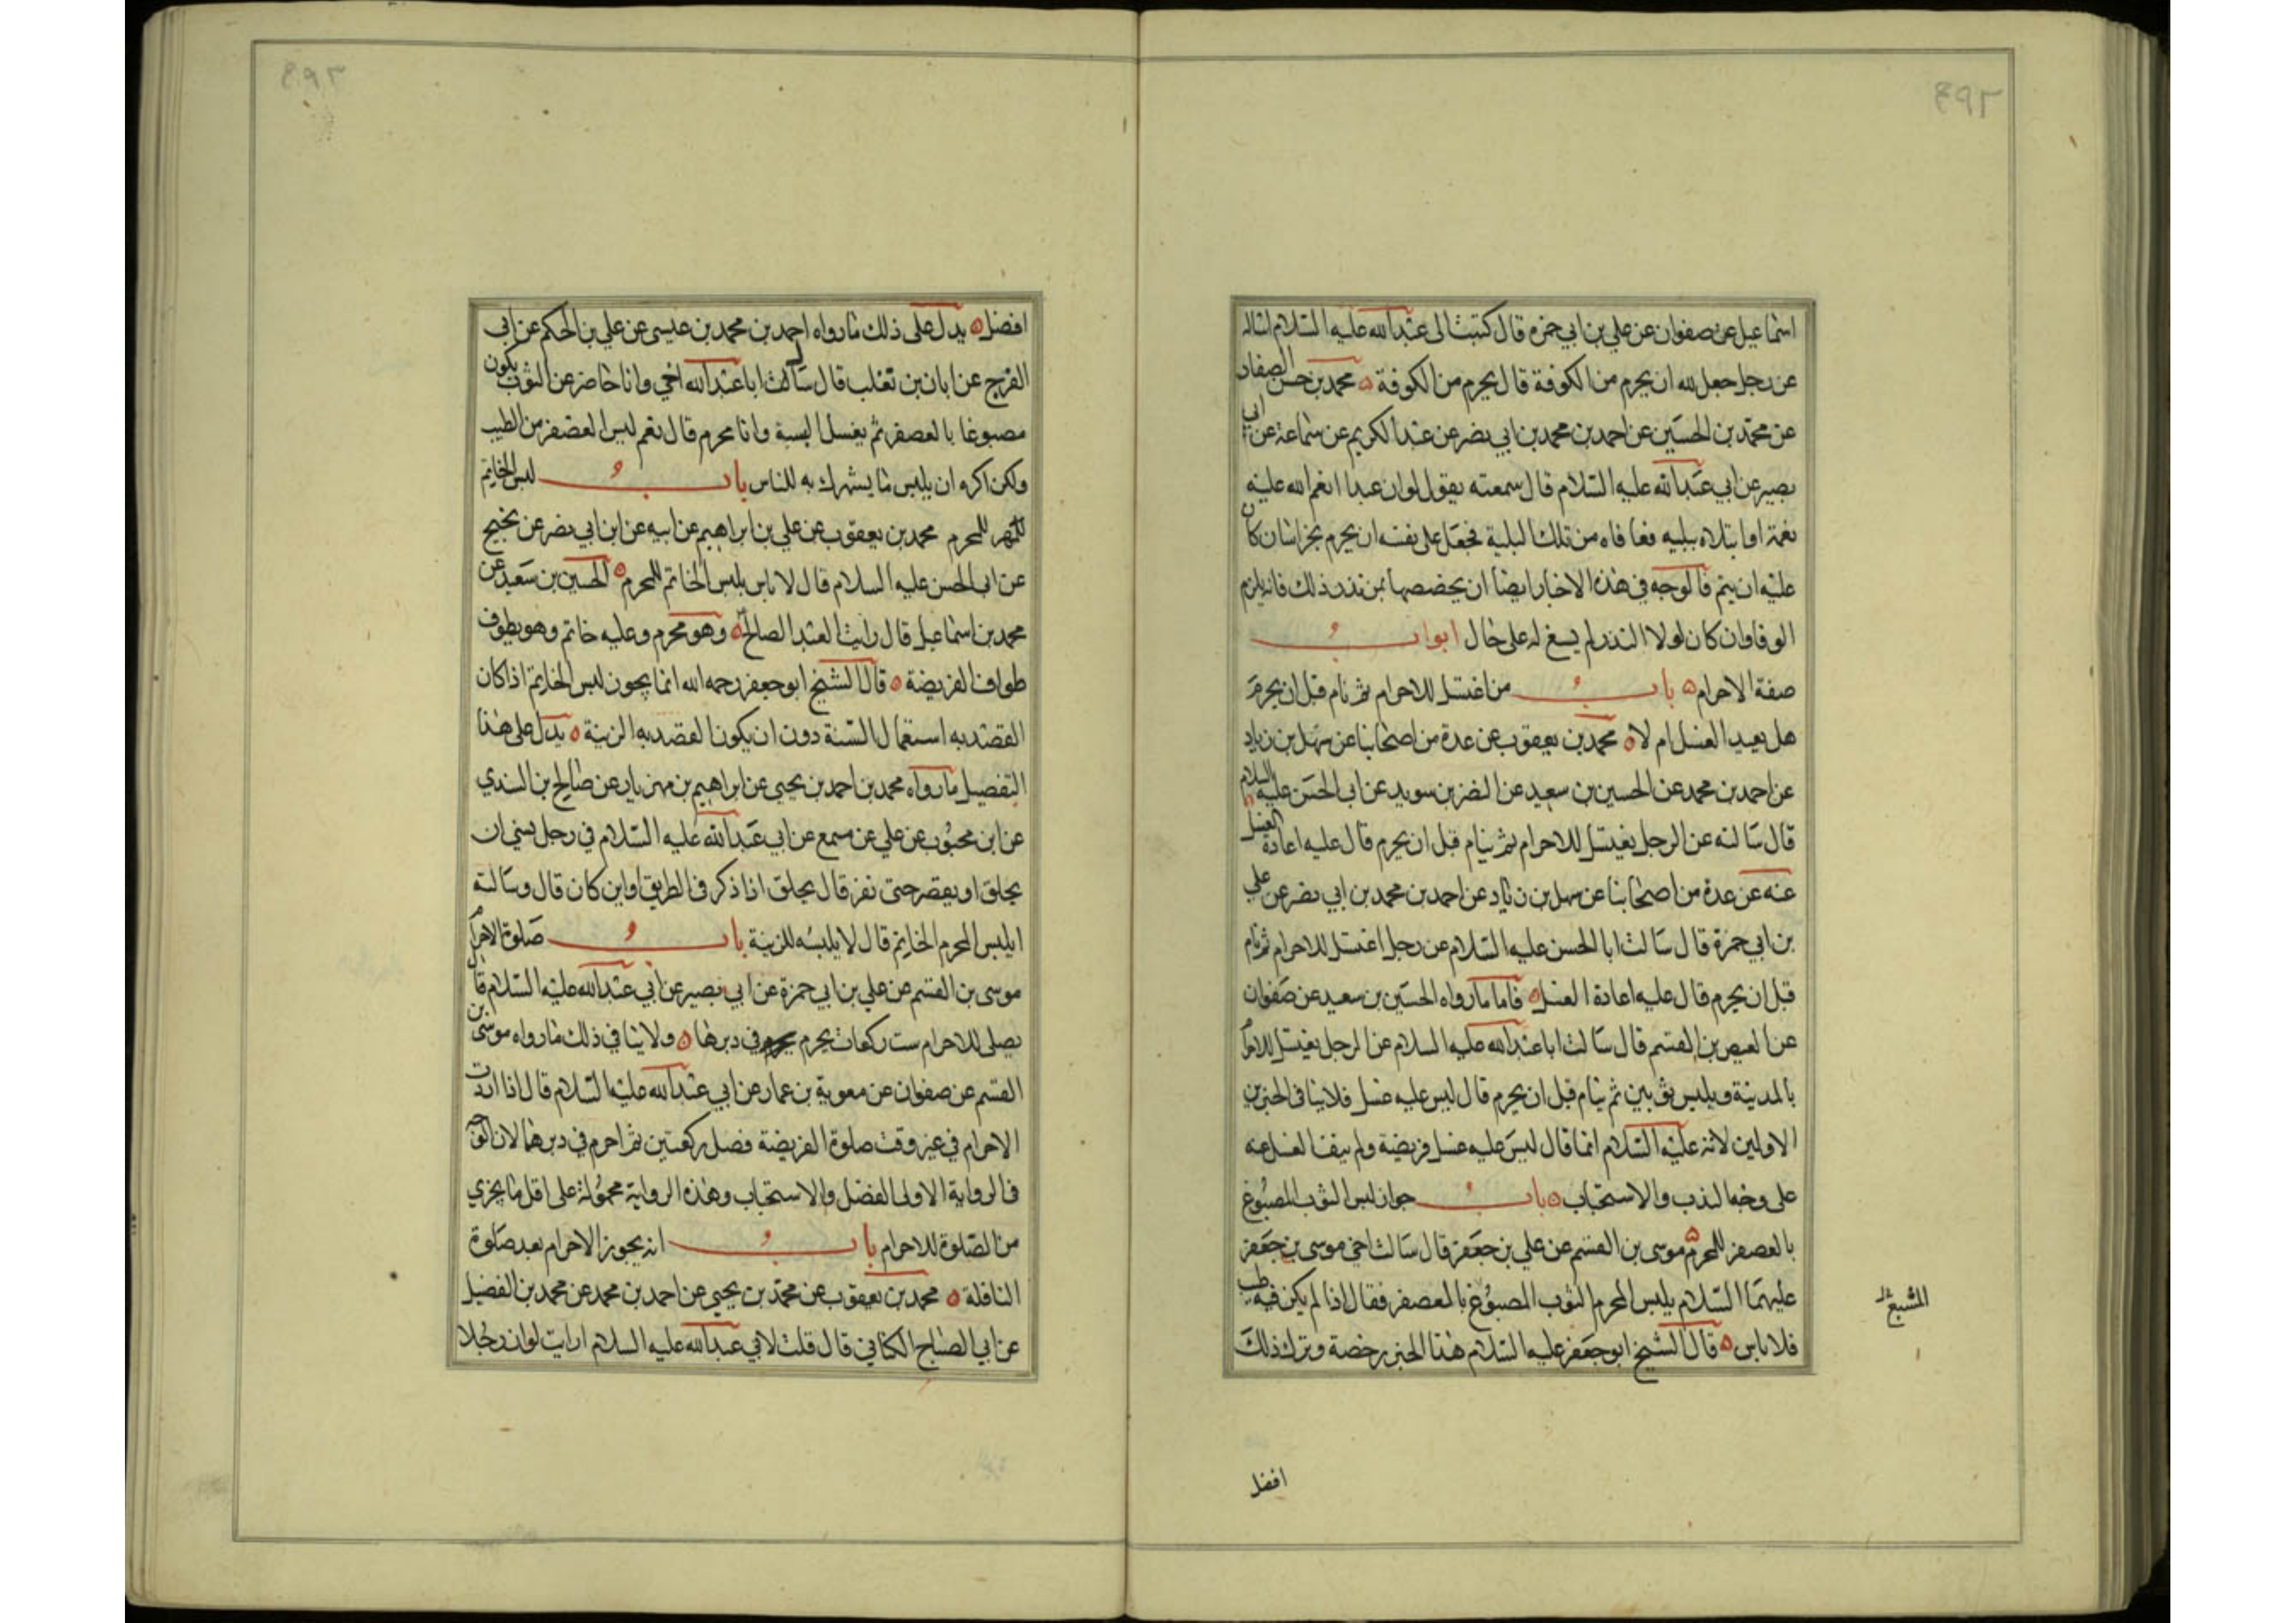 اسماعيل عن صفوان عن علي بن ابي حمزه قال كتبت الى عبدالله عليه السلام اساله
عن رجل جعل لله ان يحرم من الكوفة قال يحرم من الكوفة ه محمد بن حسن الصفار
عن محمد بن الحسين عن احمد بن محمد بن ابي نصر عن عبدالكريم عن سماعة عن ابي
بصير عن ابي عبدالله عليه السلام قال سمعته يقول لو ان عبدا انعم الله عليه
نعمة او ابتلاه ببلية فعافاه من تلك البلية فجعل على نفسه ان يحرم بخراسان كان
عليه ان يتم فالوجه في هذه الاخبار ايضا ان يخصصها بمن نذر ذلك فانه يلزم
الوفا وان كان لولا النذر لم يسغ له على حال ابواب
صفة الاحرام ه باب من اغتسل للاحرام ثم نام قبل ان يحرم
هل يعيد الغسل ام لا ه محمد بن يعقوب عن عدة من اصحابنا عن سهل بن زياد
عن احمد بن محمد عن الحسين بن سعيد عن النضر بن سويد عن ابي الحسن عليه السلام
قال سالته عن الرجل يغتسل للاحرام ثم ينام قبل ان يحرم قال عليه اعادة الغسل
عنه عن عدة من اصحابنا عن سهل بن زياد عن احمد بن محمد بن ابي نصر عن علي
بن ابي حمزة قال سالت ابا الحسن عليه السلام عن رجل اغتسل للاحرام ثم نام
قبل ان يحرم قال عليه اعادة الغسل ه فاما ما رواه الحسين بن سعيد عن صفوان
عن العيص بن القسم قال سالت ابا عبدالله عليه السلام عن الرجل يغتسل للاحرام
بالمدينة ويلبس ثوبين ثم ينام قبل ان يحرم قال ليس عليه غسل فلا ينافي الخبرين
الاولين لانه عليه السلام انما قال ليس عليه غسل فريضة ولم ينف الغسل عنه
على وجه الندب والاستحباب ه باب جواز لبس الثوب المصبوغ
بالعصفر للمحرم ه موسى بن القسم عن علي بن جعفر قال سالت اخي موسى بن جعفر
عليهما السلام يلبس المحرم الثوب المصبوغ بالعصفر فقال اذا لم يكن فيه طيب
المشبع
فلا باس ه قال الشيخ ابو جعفر عليه السلام هذا الخبر رخصة وترك ذلك
افضل
افضل ه يدل على ذلك ما رواه احمد بن محمد بن عيسى عن علي بن الحكم عن ابي
الفرج عن ابان بن تغلب قال سالت ابا عبدالله اخي وانا حاضر عن الثوب يكون
مصبوغا بالعصفر ثم يغسل البسه وانا محرم قال نعم ليس العصفر من الطيب
ولكن اكره ان يلبس ما يشهرك به للناس باب لبس الخاتم
للمحرم محمد بن يعقوب عن علي بن ابراهيم عن ابيه عن ابن ابي نصر عن نجيح
عن ابي الحسن عليه السلام قال لا باس بلبس الخاتم للمحرم ه الحسين بن سعيد عن
محمد بن اسماعيل قال رايت العبد الصالح وهو محرم وعليه خاتم وهو يطوف
طواف الفريضة ه قال الشيخ ابو جعفر رحمه الله انما يجوز لبس الخاتم اذا كان
القصد به استعمال السنة دون ان يكون القصد به الزينة ه يدل على هذا
التفصيل ما رواه محمد بن احمد بن يحيى عن ابراهيم بن مهزيار عن صالح بن السندي
عن ابن محبوب عن علي عن مسمع عن ابي عبدالله عليه السلام في رجل نسي ان
يحلق او يقصر حتى نفر قال يحلق اذا ذكر في الطريق او اين كان قال وسالته
ايلبس المحرم الخاتم قال لا يلبسه للزينة باب صلوة الاحرام
موسى بن القسم عن علي بن ابي حمزة عن ابي بصير عن ابي عبدالله عليه السلام قال
يصلى للاحرام ست ركعات يحرم يحرم في دبرها ه ولا ينافي ذلك ما رواه موسى بن
القسم عن صفوان عن معوية بن عمار عن ابي عبدالله عليه السلام قال اذا اردت
الاحرام في غير وقت صلوة الفريضة فصل ركعتين ثم احرم في دبرهما لان الوجه
في الرواية الاولى الفضل والاستحباب وهذه الرواية محمولة على اقل ما يجزي
من الصلوة للاحرام باب انه يجوز الاحرام بعد صلوة
النافلة ه محمد بن يعقوب عن محمد بن يحيى عن احمد بن محمد عن محمد بن الفضيل
عن ابي الصباح الكناني قال قلت لابي عبدالله عليه السلام ارايت لو ان رجلا